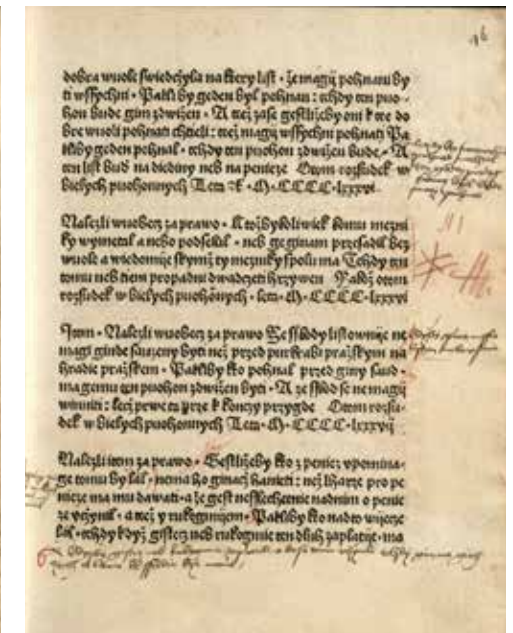 16
dobra wuole swiedczyla na ktery list · Ze magij pohnani by
ti wssychni · Paklliby geden byl pohnan : tehdy ten puo-
hon bude gim zdwizen · A tiez zase gestližeby oni k te do
bre wuoli pohnati chtieli : tiez magij wssychni pohnati Pa
kliby geden pohnal · tehdy ten puohon zdwizen bude · A
ten list bud na diediny neb na penieze Otom rozsudek w
bielych puohonnych Leta ꝛč · M · CCCC · lxxxvi
Nalezli wuobecz za prawo · Ktožbykoliwiek komu mezni
ky wymetal a nebo podsekal · neb ge ginam przesadil bez
wuole a wiedomije skymž ty mezniky spolu ma Tehdy ten
tomu neb tiem propadni dwadczeti hrziwen Takdž otom
rozsudek w bielych puohōnych · leta · M · CCCC · lxxxvi
Item · Nalezli wuobecz za prawo Ze sskody listownije ne
magi ginde suzeny byti než przed purkrabi pražskym na
hradie pražskem · Paklliby kto pohnal przed giny saud ·
ma gemu ten puohon zdwizen byti · A ze sskod se ne magij
winiti : lecz prwe ta prze k konczy przygde Otom rozsu-
dek w bielych puohonnych Leta · M · CCCC · lxxxvij
Nalezli item za prawo · Gestližeby kto z peniez vpomina-
ge tomu by lal · nema ho ginacz hanieti : než lharze pro pe
nieze ma mu dawati · a že gest neslechetnie nadnim o penie
ze vczynil · a tiez y rukogmijem · Paklliby kto nadto wijeze
lal · tehdy kdyz gistecz neb rukogmie ten dluh zaplatije · ma